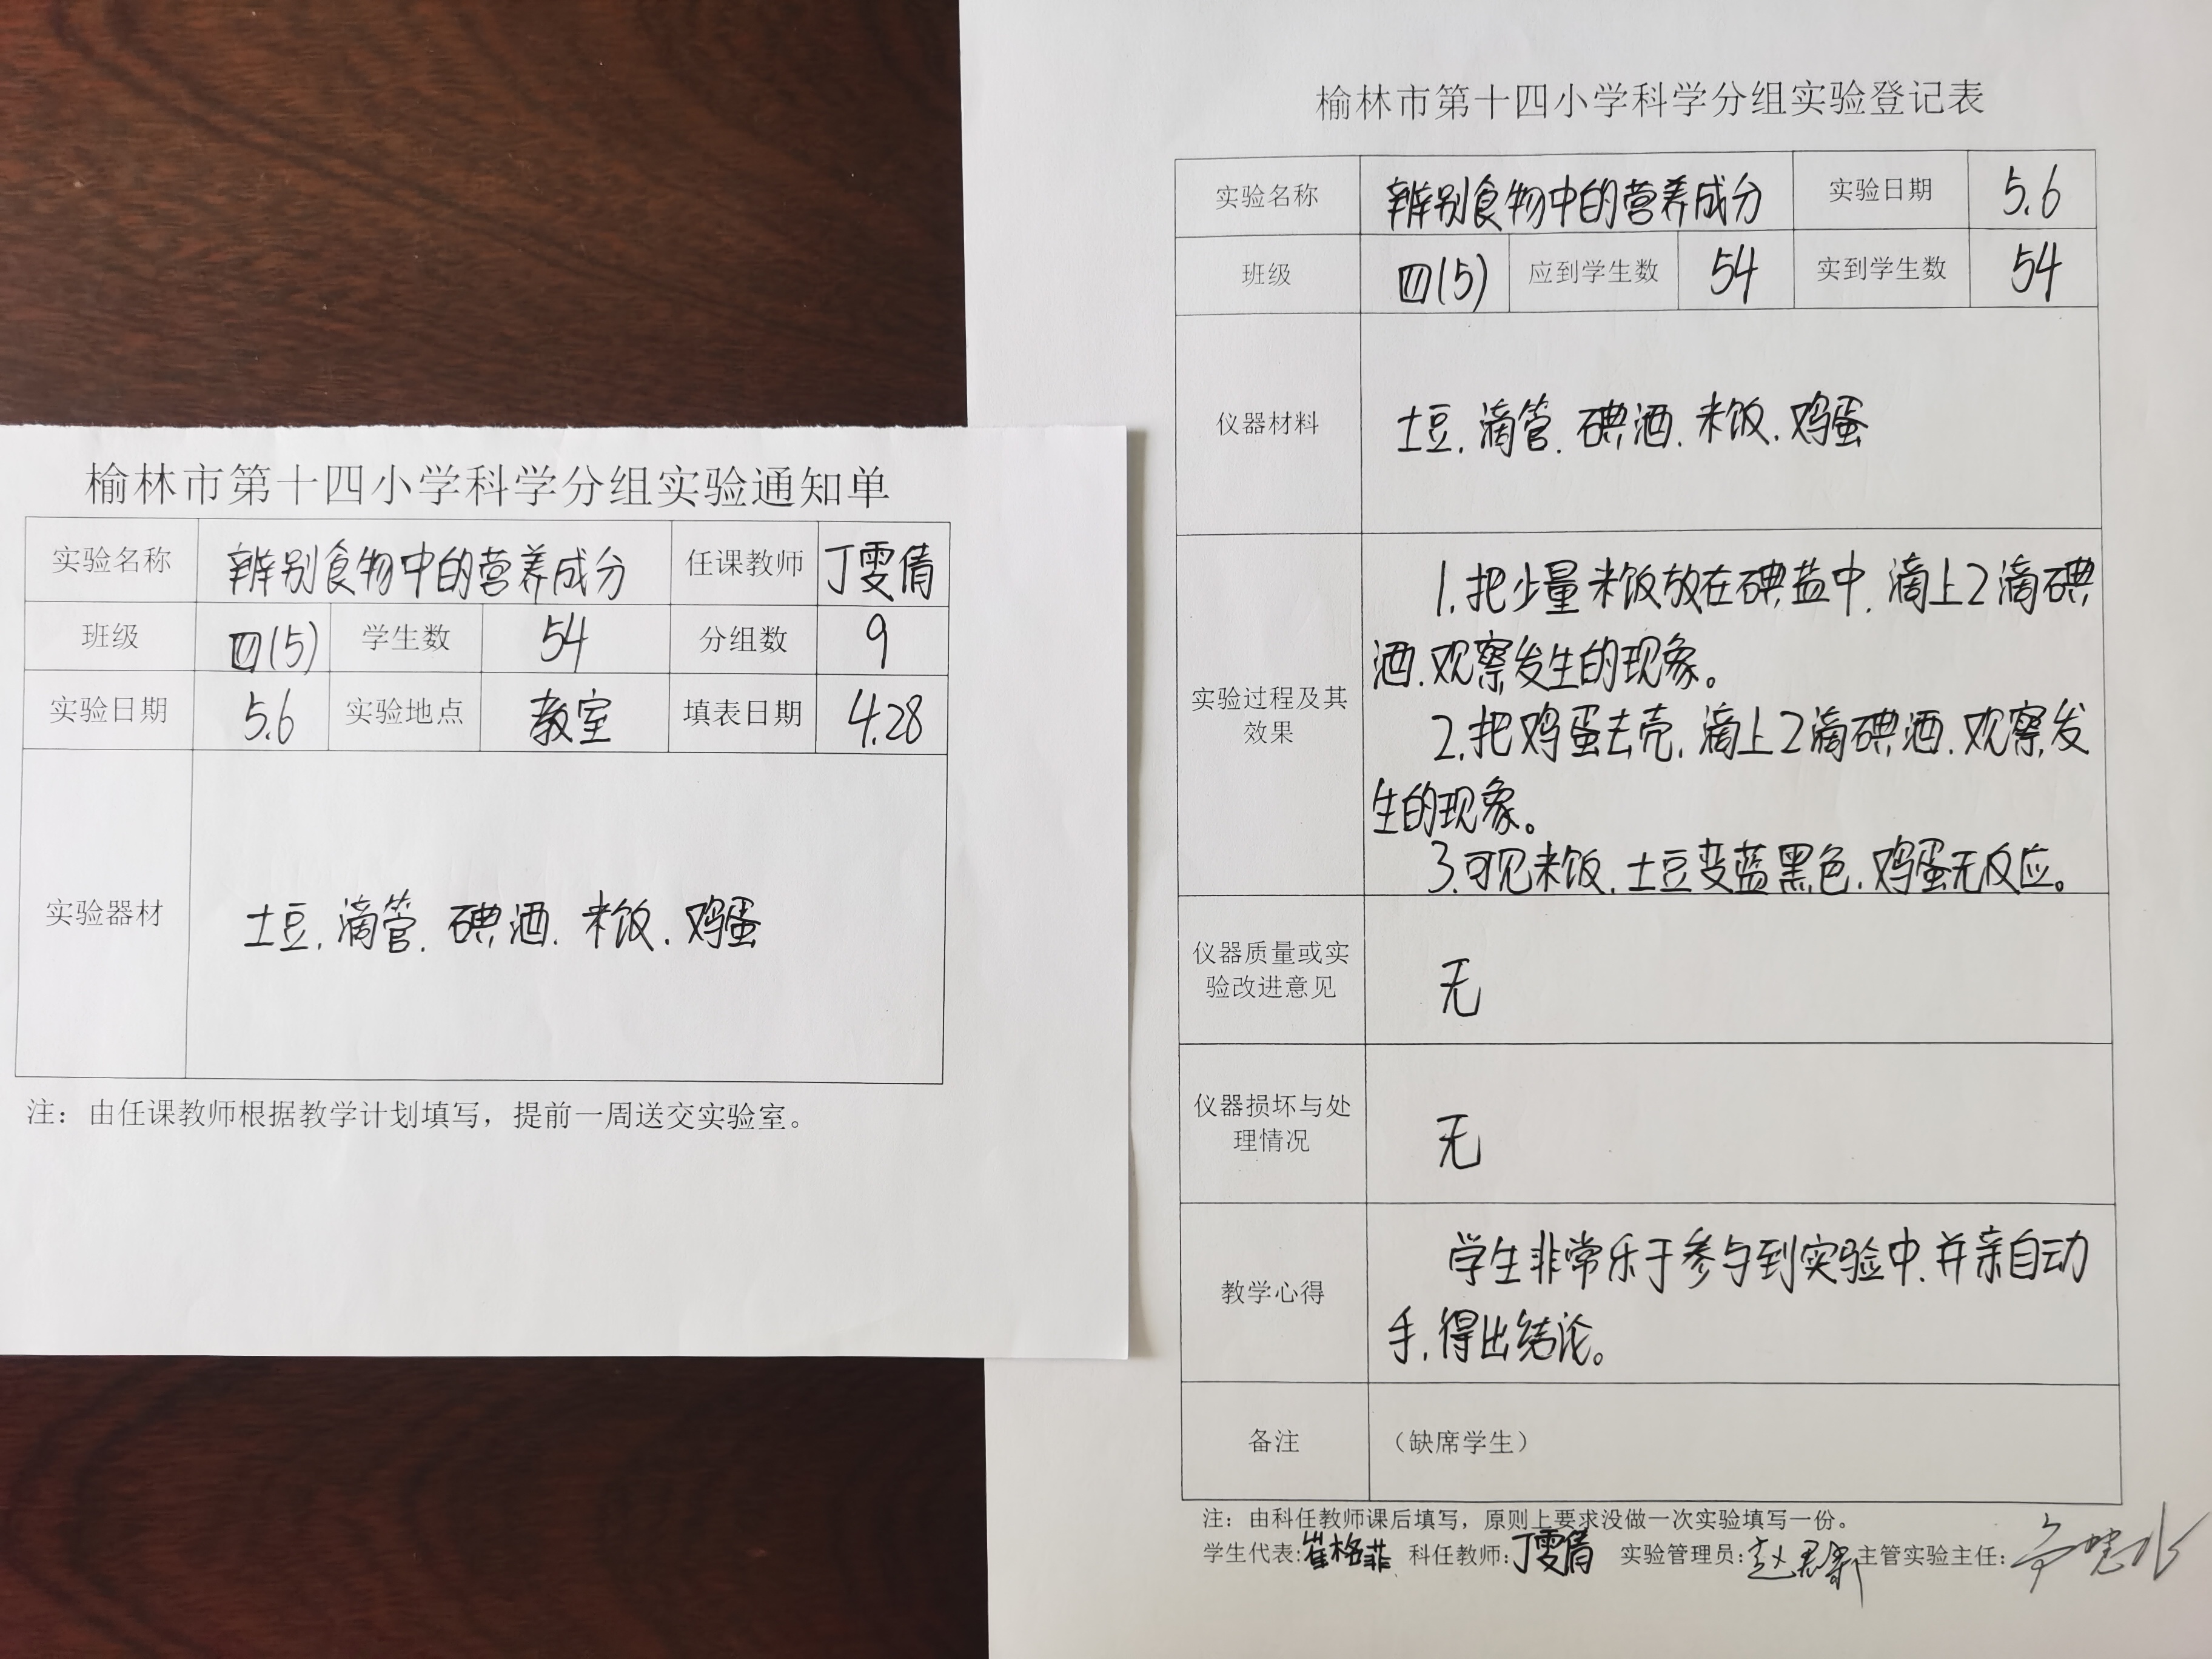 榆林市第十四小学科学分组实验通知单
实验名称 辨别食物中的营养成分 任课教师 丁雯倩
班级 四(5) 学生数 54 分组数 9
实验日期 5.6 实验地点 教室 填表日期 4.28
实验器材 土豆.滴管.碘酒.米饭.鸡蛋
注：由任课教师根据教学计划填写，提前一周送交实验室。
榆林市第十四小学科学分组实验登记表
实验名称 辨别食物中的营养成分 实验日期 5.6
班级 四(5) 应到学生数 54 实到学生数 54
仪器材料 土豆.滴管.碘酒.米饭.鸡蛋
实验过程及其
效果
1.把少量米饭放在碘盐中.滴上2滴碘
酒.观察发生的现象。
2.把鸡蛋去壳.滴上2滴碘酒.观察发
生的现象。
3.可见米饭.土豆变蓝黑色.鸡蛋无反应。
仪器质量或实
验改进意见
无
仪器损坏与处
理情况
无
教学心得
学生非常乐于参与到实验中.并亲自动
手.得出结论。
备注 （缺席学生）
注：由科任教师课后填写，原则上要求没做一次实验填写一份。
学生代表:崔格菲 科任教师:丁雯倩 实验管理员: 主管实验主任: